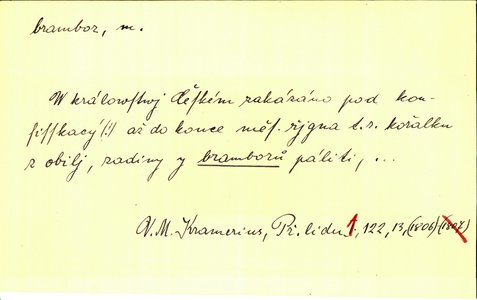 brambor, m.
W králowstwj Čeſkém zakázáno pod kon-
fiſſkacý(!) až do konce měſ. řjgna t.r. kořalku
z obilj, zadiny y bramborů páliti, ...
V. M. Kramerius, Př. lidu 1, 122, 13, (1806) (1807)